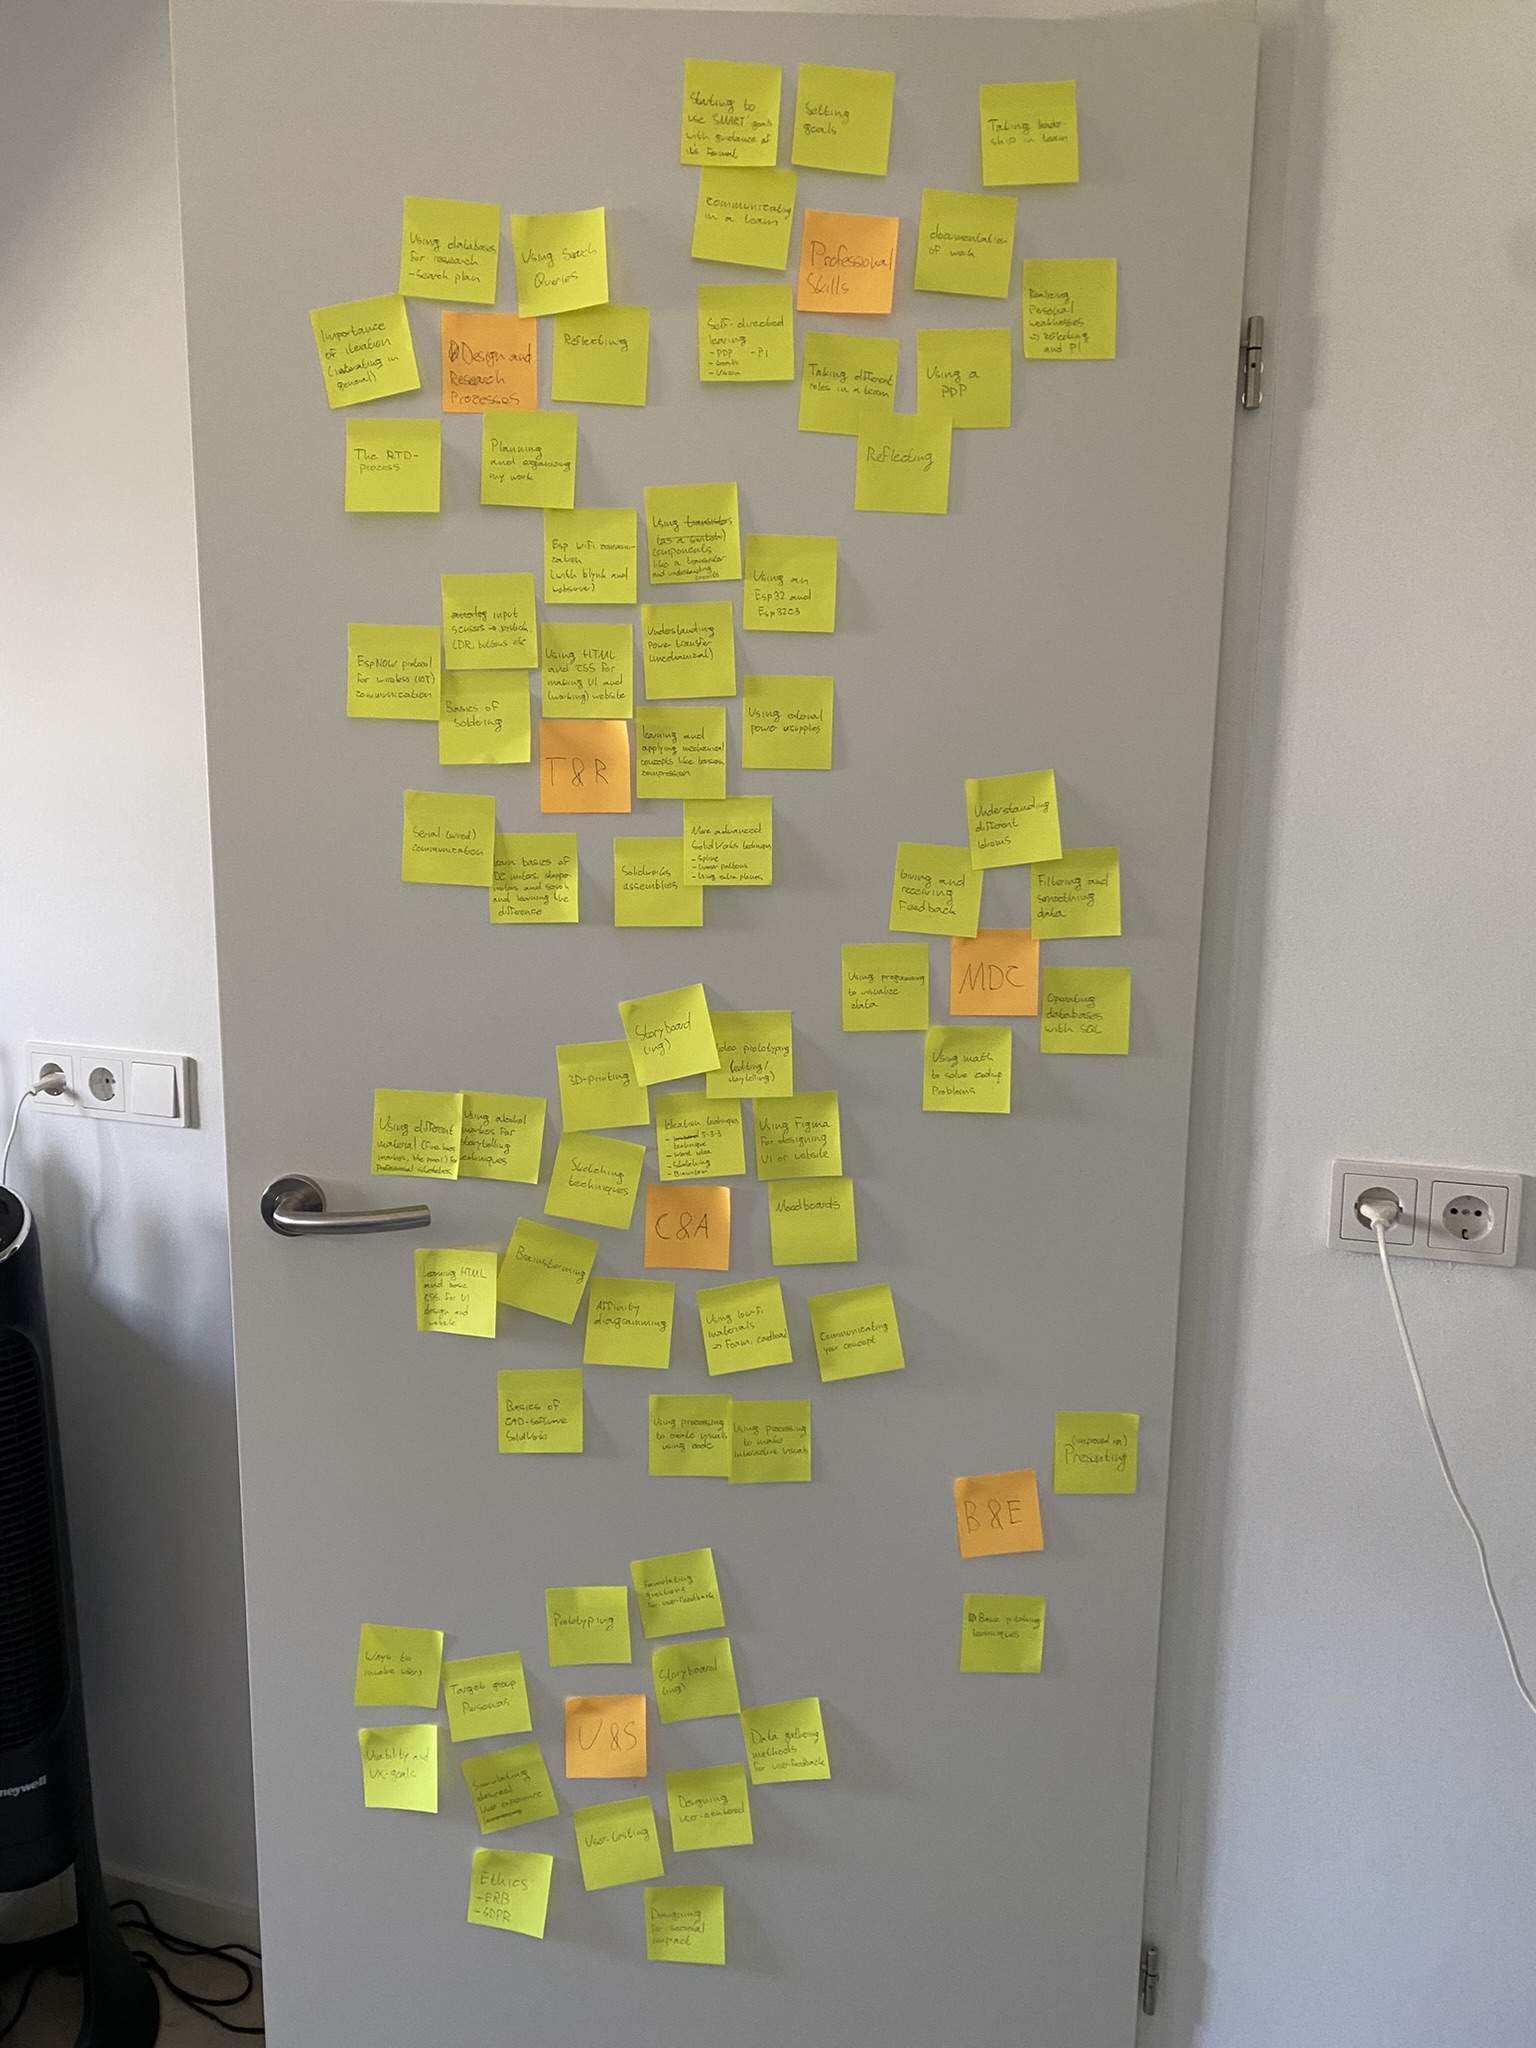 Starting to
use 'SMART' goals
with guidance of
it's format
Setting
goals
Taking leader-
ship in team
communicating
in a team
Professional
Skills
documentation
of work
Realizing
Personal
weaknesses
→ Reflecting
and PI
Self-directed
learing
- PDP - PI
- Goals
- Vision
Taking different
roles in a team
Using a
PDP
Reflecting
Using databases
for research
- Search plan
Using Search
Queries
Importance
of iteration
(interating in
general)
Design and
Research
Processes
Reflecting
The RTD-
process
Planning
and organising
my work
Esp WiFi
(with blynk and
webserver)
Using transistors
(as a switch)
components
like a transistor
and understanding
circuits
Using an
Esp32 and
Esp32C3
analog input
sensors → joystick,
LDR, buttons etc
Understanding
Power transfer
(mechanical)
EspNOW protocol
for wireless (IOT)
communication
Using HTML
and CSS for
making UI and
(working) website
Basics of
soldering
T&R
learning and
applying mechanical
concepts like torsion
compression
Using external
power supplies
Serial (wired)
communication
learn basics of
DC motors, stepper
motors and servos
and learning the
difference
Solidworks
assemblies
More advanced
SolidWorks techniques
- Spline
- Linear patterns
- Using extra planes
Understanding
different
Idioms
Giving and
receiving
Feedback
Filtering and
smoothing
data
MDC
Using programming
to visualize
data
Operating
databases
with SQL
Using math
to solve coding
Problems
Storyboard
(ing)
3D-printing
Video prototyping
(editing/
storytelling)
Using different
material (fine liners,
markers, ) for
professional sketches
Using alcohol
markers for
storytelling
techniques
Sketching
techniques
Ideation techniques
- 5-3-3
technique
- Sketching
- Brainstorm
Using Figma
for designing
UI or website
C&A
Moodboards
Learning HTML
and basic
CSS for UI
design and
website
Brainstorming
Affinity
diagramming
Using low-fi
materials
→ Foam, cardboard
Communicating
your concept
Basics of
CAD-software
SolidWorks
Using processing
to create visuals
using code
Using processing
to make
interactive visuals
(improved on)
Presenting
B&E
Basic pitching
techniques
Formulating
questions
for user-feedback
Prototyping
Ways to
involve users
Target group
Personas
Storyboard
(ing)
U&S
Usability and
UX-goals
Simulating
desired
User experience
Data gathering
methods
for user-feedback
Designing
user-centered
User-testing
Ethics
- ERB
- GDPR
Designing
for societal
impact
neywell